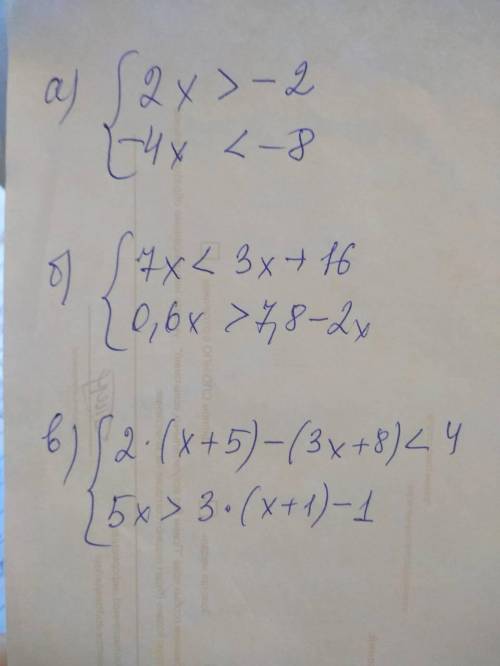 а) { 2x > -2
-4x < -8
б) { 7x < 3x + 16
0,6x > 7,8 - 2x
в) { 2·(x+5) - (3x+8) < 4
5x > 3·(x+1) - 1